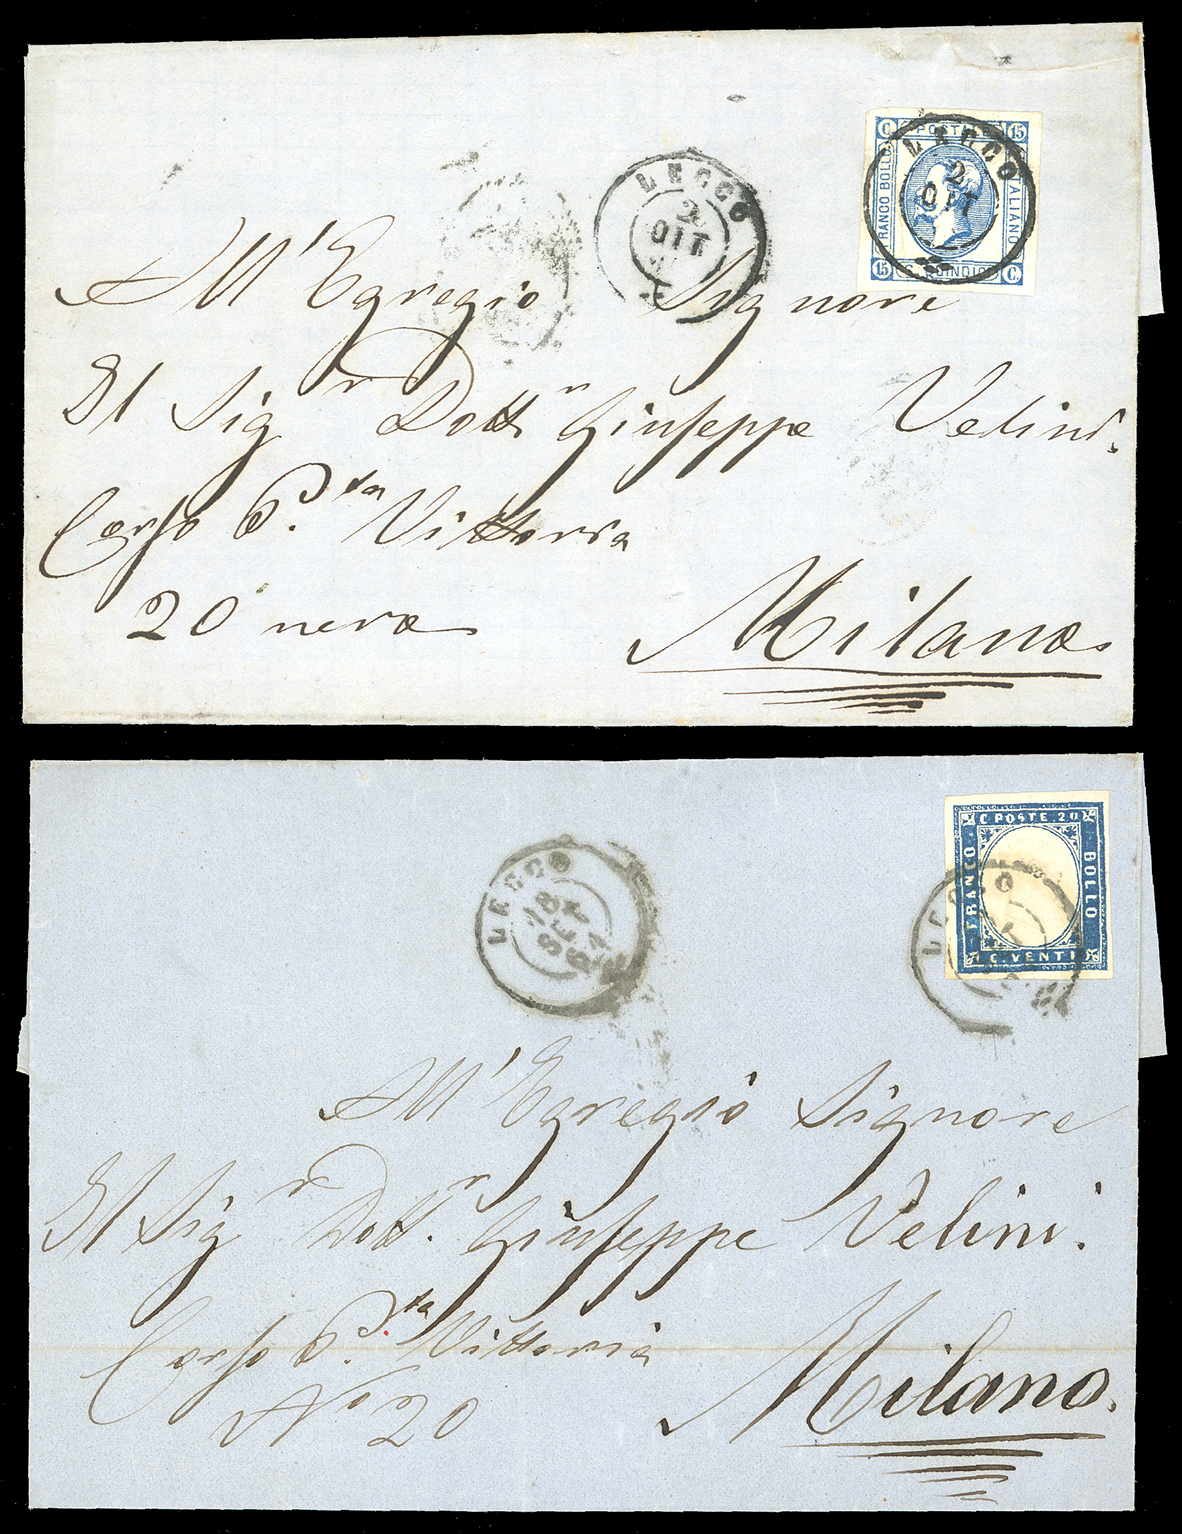 C POSTE 15
FRANCO BOLLO
ITALIANO
15 C. QUINDICI C.
LECCO
2
OTT
LECCO
2
OTT
All' Egregio Signore
Il Sigr Dottr Giuseppe Velini.
Corso P.ta Vittoria
20 nero
Milano
C. POSTE. 20
FRANCO
BOLLO
C. VENTI
LECCO
LECCO
18
SET
All' Egregio Signore
Il Sigr Dott.r Giuseppe Velini.
Corso P.ta Vittoria
No 20
Milano.